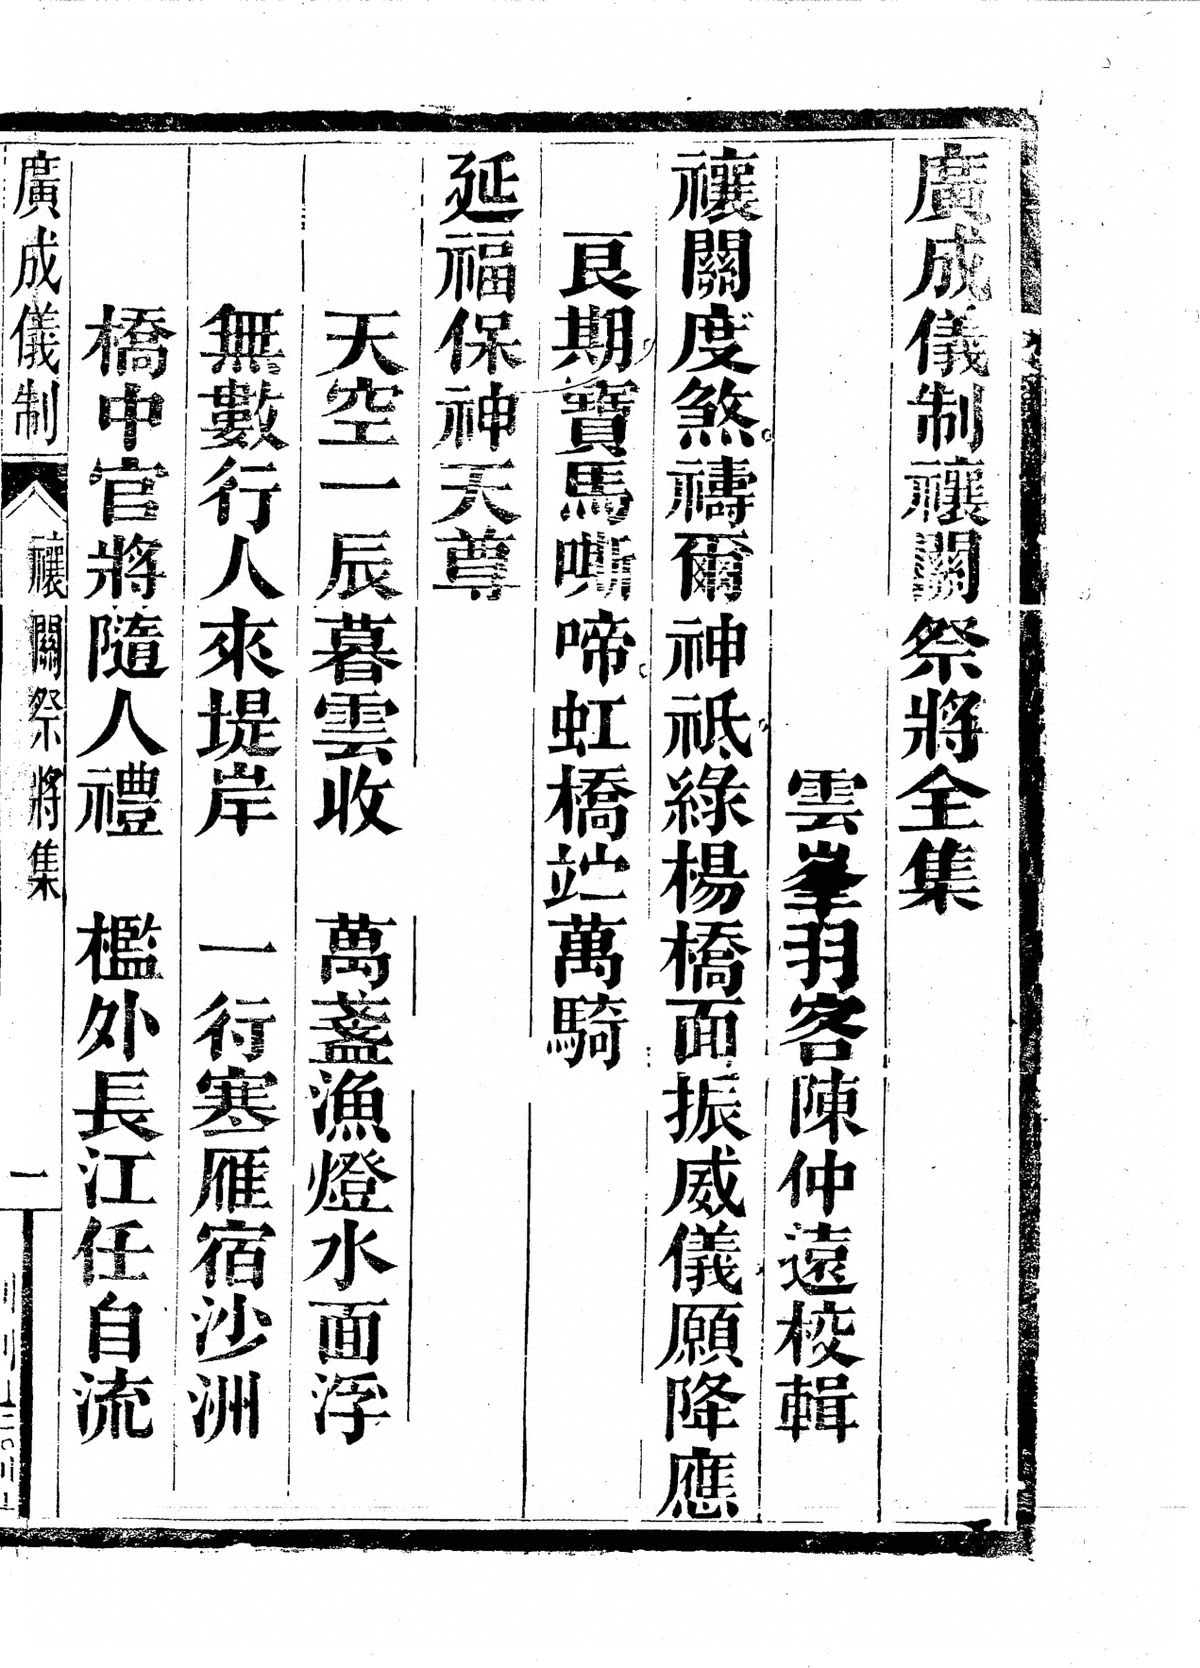 廣成儀制禳關祭將全集
雲峯羽客陳仲遠校輯
禳關度煞禱爾神祗綠楊橋面振威儀願降應
艮期寶馬嘶啼虹橋竚萬騎
延福保神天尊
天空一辰暮雲收　萬盞漁燈水面浮
無數行人來堤岸　一行寒雁宿沙洲
橋中官將隨人禮　檻外長江任自流
廣成儀制　禳關祭將集　一